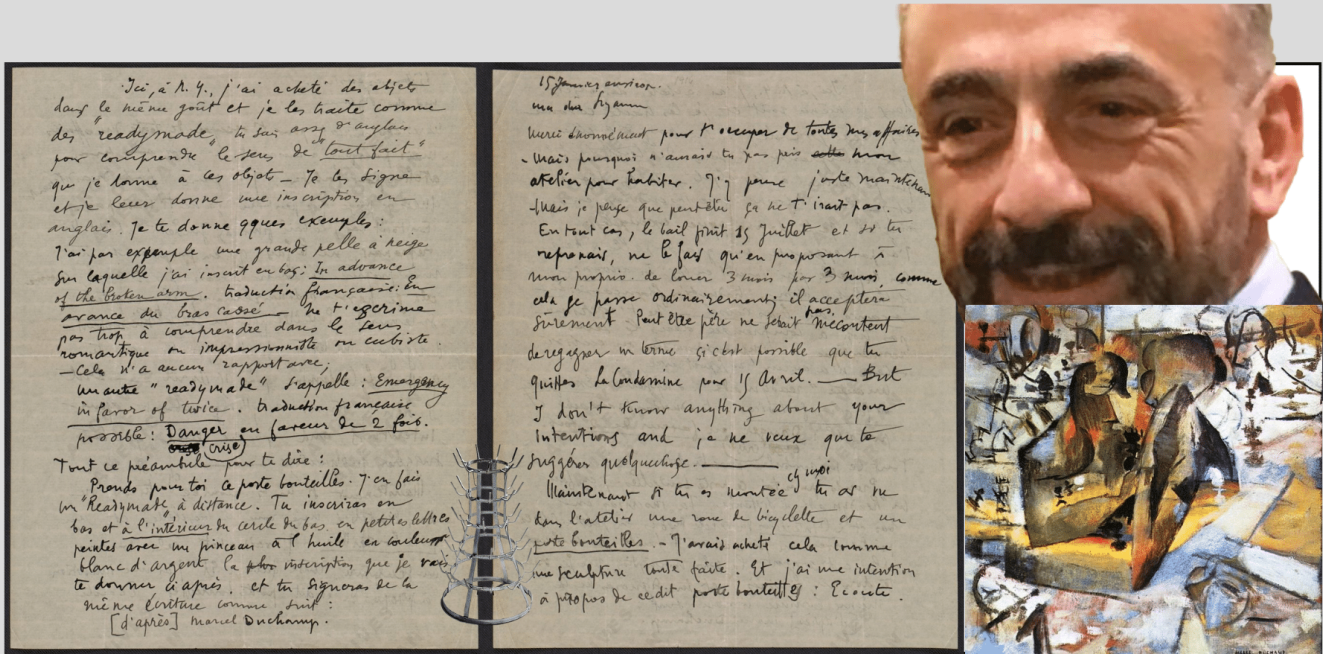 Ici, à N.Y., j'ai acheté des objets
dans le même goût et je les traite comme
des "readymade", tu sais assez d'anglais
pour comprendre le sens de "tout fait"
que je donne à ces objets – Je les signe
et je leur donne une inscription en
anglais. Je te donne qques exemples :
J'ai par exemple une grande pelle à neige
sur laquelle j'ai inscrit en bas : In advance
of the broken arm. traduction française : En
avance du bras cassé – Ne t'escrime
pas trop à comprendre dans le sens
romantique ou impressionniste ou cubiste.
– Cela n'a aucun rapport avec ;
un autre "readymade" s'appelle : Emergency
in favor of twice. traduction française
possible : Danger en faveur de 2 fois.
(crise)
Tout ce préambule pour te dire :
Prends pour toi ce porte bouteilles. J'en fais
un "Readymade" à distance. Tu inscriras en
bas et à l'intérieur du cercle du bas, en petites lettres
peintes avec un pinceau à l'huile en couleur
blanc d'argent la inscription que je vais
te donner ci après. et tu signeras de la
même écriture comme suit :
[d'après] Marcel Duchamp.
15 Janvier
ma chère Suzanne
Merci énormément pour t'occuper de toutes mes affaires
– Mais pourquoi n'aurais tu pas pris mon
atelier pour habiter. J'y pense juste maintenant
– Mais je pense que peut être ça ne t'irait pas.
En tout cas, le bail finit 15 Juillet et si tu
reprenais, ne le fais qu'en proposant à
mon proprio. de louer 3 mois par 3 mois, comme
cela se passe ordinairement ; il acceptera
sûrement Peut être père ne serait pas mécontent
de regagner un terme si c'est possible que tu
quittes La Condamine pour 15 Avril. — But
I don't know anything about your
intentions and je ne veux que te
suggérer quelquechose. —
Maintenant si tu es montée chez moi tu as vu
dans l'atelier une roue de bicyclette et un
porte bouteilles. – J'avais acheté cela comme
une sculpture toute faite. Et j'ai une intention
à propos de ce dit porte bouteilles : Ecoute.